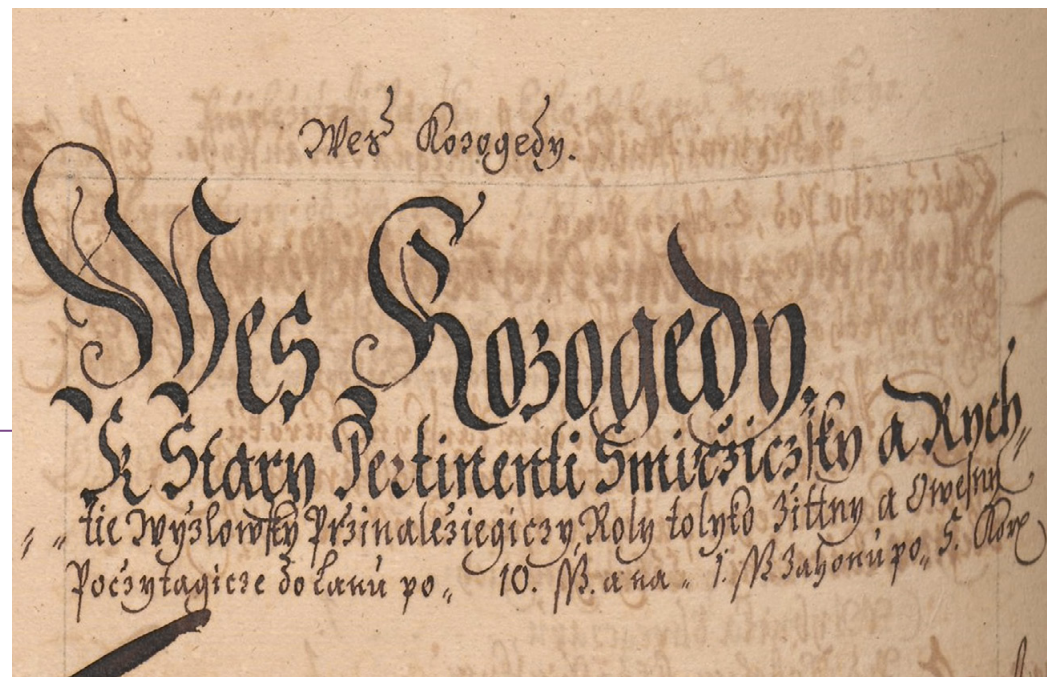 Wes Kozogedy.
Wes Kozogedy,
K Stary Pertinenti Smirziczsky a Rych„
„tie Wyzlowsky Przinaleziegiczy, Roly tolyko Zittny a Owesny
Poczytagicze do Lanu po„ 10. ß. a na„ 1. ß Zahonu po„ 5. Kop